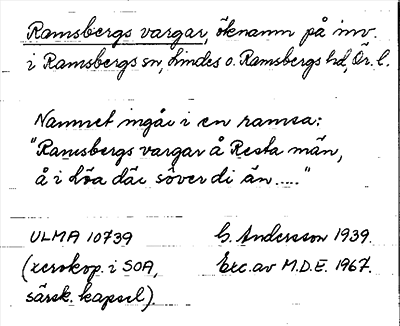 Ramsbergs vargar, öknamn på inv.
i Ramsbergs sn, Lindes o. Ramsbergs hd, Ör. l.
Namnet ingår i en ramsa:
"Ramsbergs vargar å Resta män,
å i Löa där söver di än....."
ULMA 10739 G. Andersson 1939.
(xerokop. i SOA, Exc. av M.D.E. 1967.
särsk. kapsel).